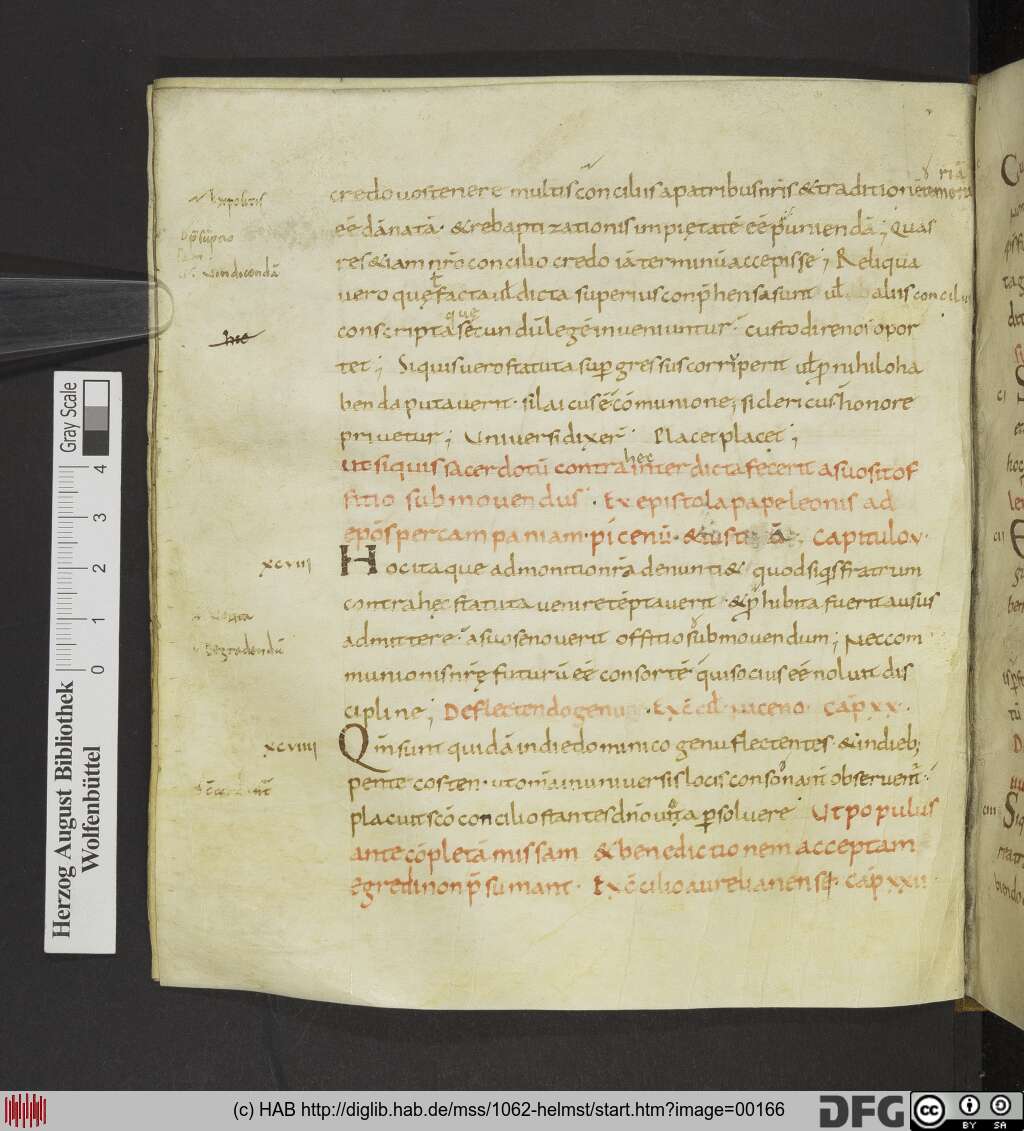 credo uos tenere multis conciliis a patribus nr̄is & traditionē temera
eē dānatā · & rebaptizationis impi&atē eē puniendā ; Quas
res &iam nr̄o concilio credo iā terminū accepisse ; Reliqua
uero quę facta ul̄ dicta superius conp̄hensa sunt ul̄ aliis conciliis
conscripta secundū legē inueniuntur custodire nos opor
tet ; Si quis uero statuta sup̱gressus corruperit ul̄ p̱ nihilo ha
benda putauerit · si laicus ē cōmunione ; si clericus honore
priuetur ; Uniuersi dixer̄ · Placet placet ;
ut si quis sacerdotū contra hec interdicta fecerit a suo sit of
fitio submouendus · Ex epistola pape leonis ad
ep̄os per campaniam · picenū · & tusc Capitulo v ·
xcviii Hoc itaque admonitio nr̄a denunti& quod siq̄s fratrum
contra hęc statuta uenire tēptauerit · & p̱hibita fuerit ausus
admittere · a suo se nouerit offitio submouendum ; Nec com
munionis nr̄ę futurū eē consortē qui socius eē noluit dis
cipline ; De flectendo genu · Ex c̄cil̄ niceno · cap̄ xx ·
xcviiii Qm̄ sunt quidā in die dominico genu flectentes & in dieb;
pentecosten · ut om̄a in uniuersis locis consonant̄ obseruent̄ ·
placuit sc̄o concilio stantes dn̄o uota p̱soluere Ut populus
ante cōpletā missam & benedictionem acceptam
egredi non p̄sumant · Ex c̄cilio aurelianensę · cap̄ xxii ·
hec
Herzog August Bibliothek
Wolfenbüttel
Gray Scale
0 1 2 3 4
(c) HAB http://diglib.hab.de/mss/1062-helmst/start.htm?image=00166
DFG
cc BY SA